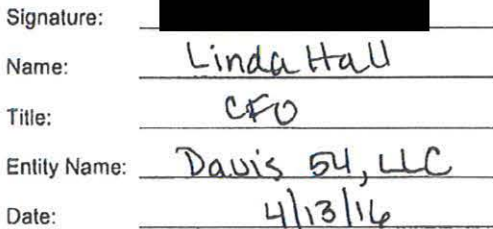 Signature:
Name: Linda Hall
Title: CFO
Entity Name: Davis 54, LLC
Date: 4/13/16